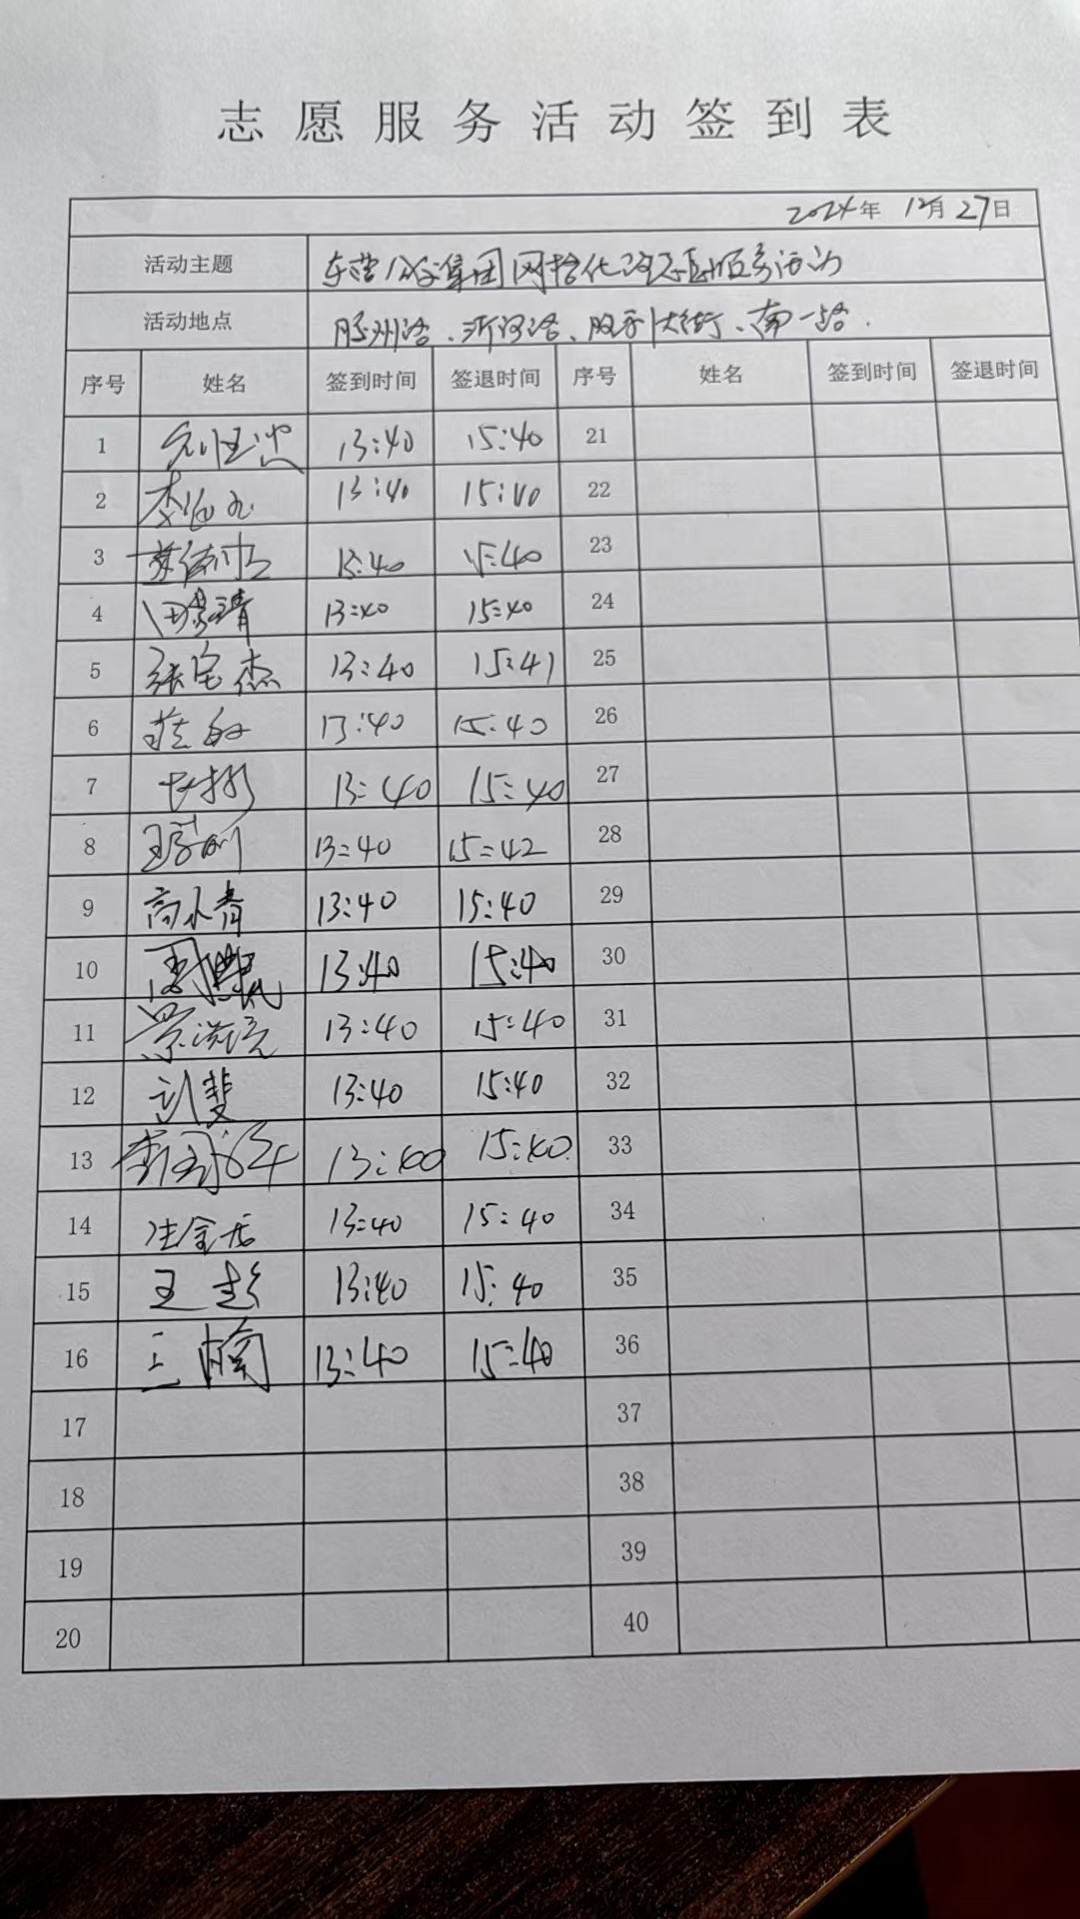 志愿服务活动签到表
2024年 12月27日
活动主题 东营公交集团网格化志愿服务活动
活动地点 胶州路、沂河路、胜利大街、南一路.
序号 姓名 签到时间 签退时间 序号 姓名 签到时间 签退时间
1 13:40 15:40 21
2 13:40 15:40 22
3 13:40 15:40 23
4 13:40 15:40 24
5 张宝杰 13:40 15:41 25
6 13:40 15:40 26
7 13:40 15:40 27
8 13:40 15:42 28
9 高小青 13:40 15:40 29
10 13:40 15:40 30
11 13:40 15:40 31
12 刘斐 13:40 15:40 32
13 13:40 15:40 33
14 13:40 15:40 34
15 王超 13:40 15:40 35
16 王楠 13:40 15:40 36
17 37
18 38
19 39
20 40